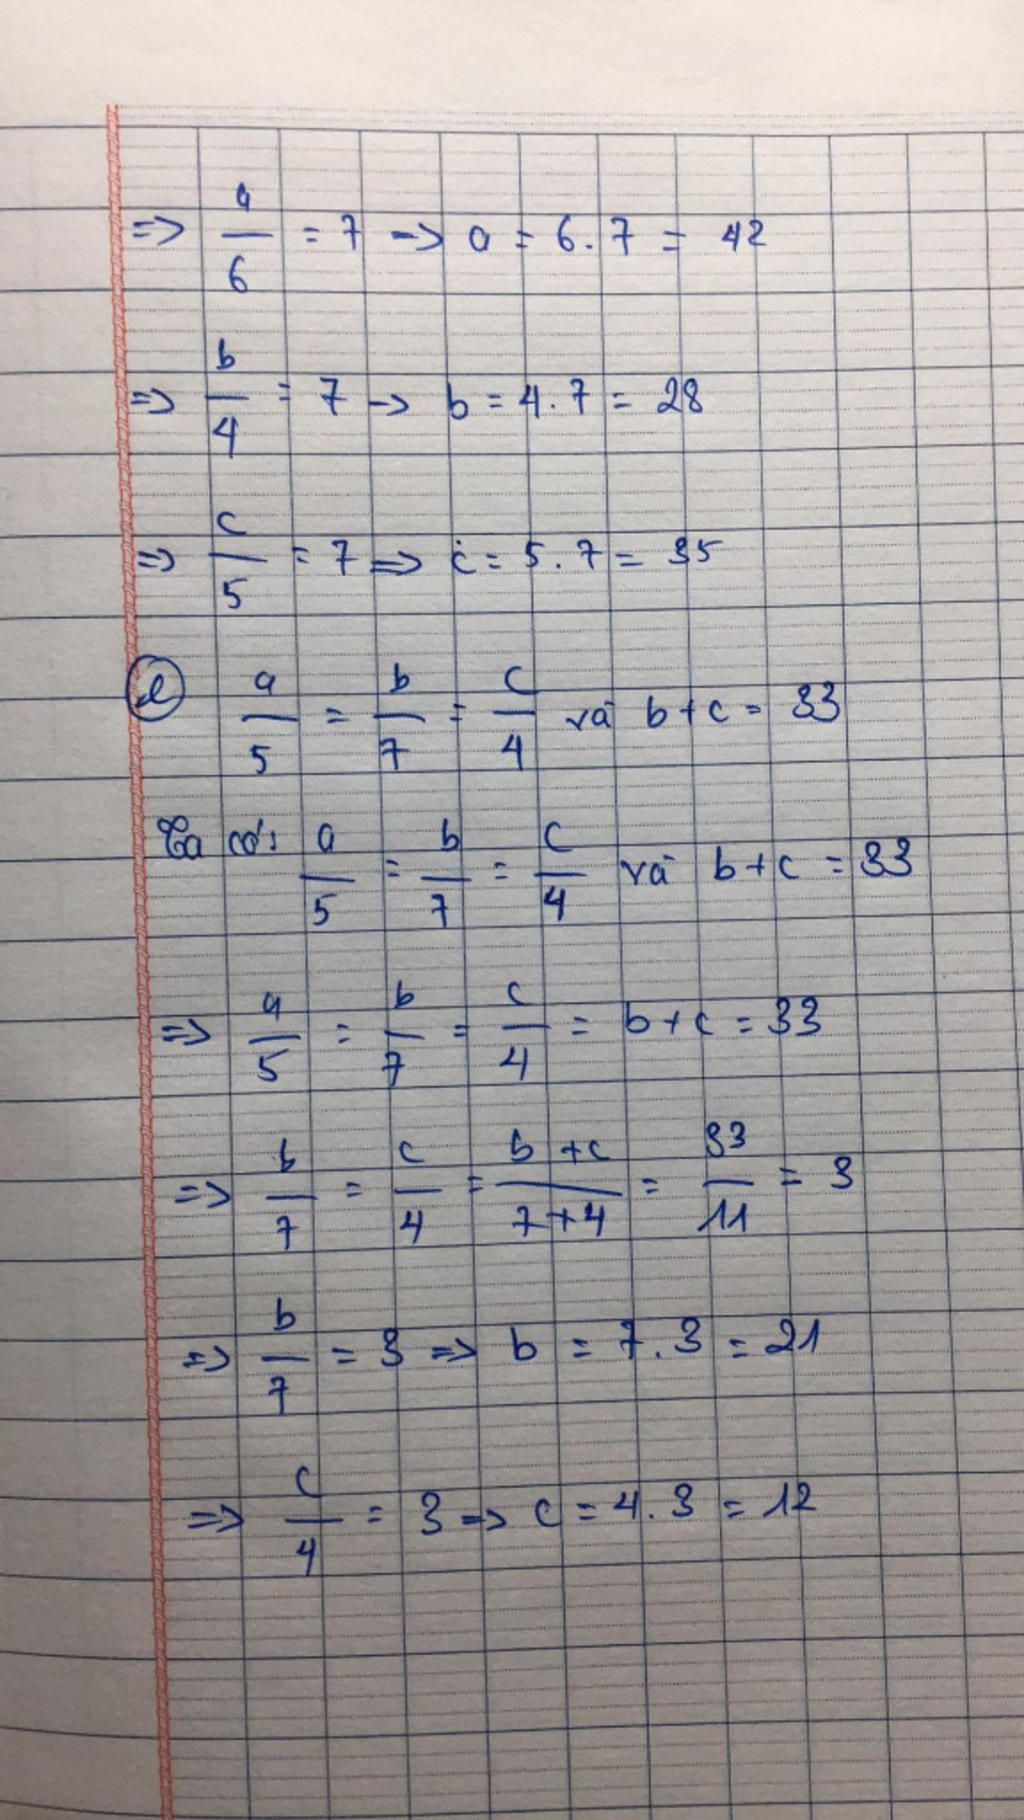 => a/6 = 7 -> a = 6.7 = 42
=> b/4 = 7 -> b = 4.7 = 28
=> c/5 = 7 => c = 5.7 = 35
e a/5 = b/7 = c/4 và b+c = 33
Ta có: a/5 = b/7 = c/4 và b+c = 33
=> a/5 = b/7 = c/4 = b+c = 33
=> b/7 = c/4 = b+c/7+4 = 33/11 = 3
=> b/7 = 3 => b = 7.3 = 21
=> c/4 = 3 => c = 4.3 = 12